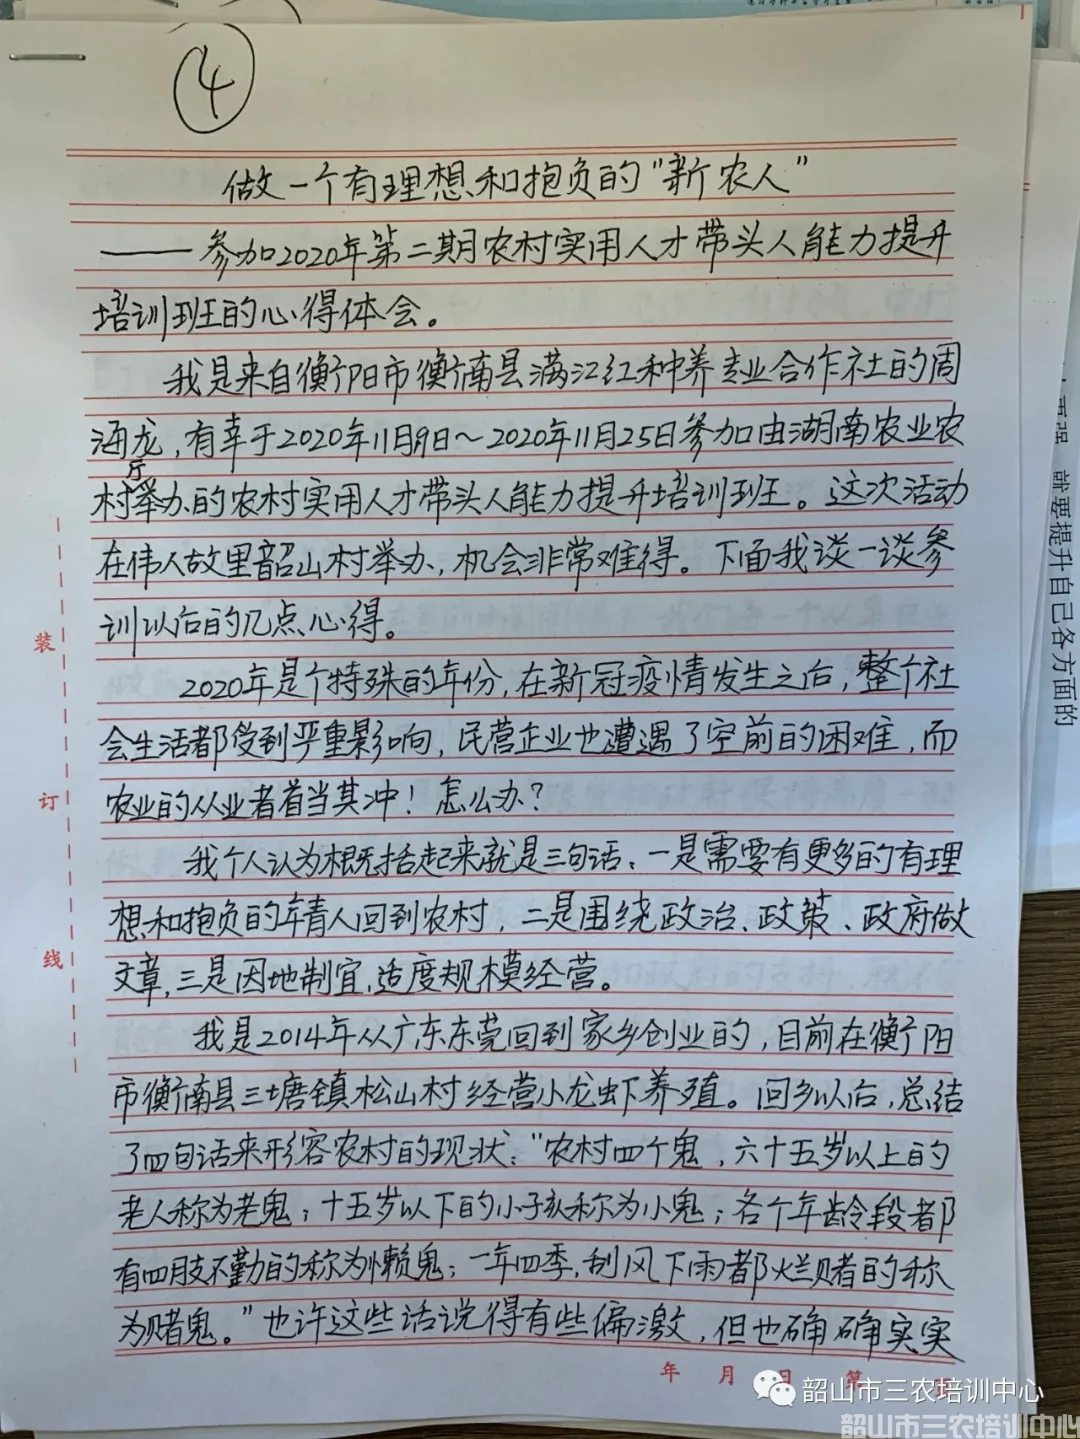 ④
做一个有理想和抱负的“新农人”
——参加2020年第二期农村实用人才带头人能力提升
培训班的心得体会。
我是来自衡阳市衡南县满江红种养专业合作社的周
海龙,有幸于2020年11月9日~2020年11月25日参加由湖南农业农
村厅举办的农村实用人才带头人能力提升培训班。这次活动
在伟人故里韶山村举办,机会非常难得。下面我谈一谈参
训以后的几点心得。
2020年是个特殊的年份,在新冠疫情发生之后,整个社
会生活都受到严重影响,民营企业也遭遇了空前的困难,而
农业的从业者首当其冲!怎么办?
我个人认为概括起来就是三句话:一是需要有更多的有理
想和抱负的年青人回到农村,二是围绕政治、政策、政府做
文章,三是因地制宜,适度规模经营。
我是2014年从广东东莞回到家乡创业的,目前在衡阳
市衡南县三塘镇松山村经营小龙虾养殖。回乡以后,总结
了四句话来形容农村的现状:“农村四个鬼,六十五岁以上的
老人称为老鬼;十五岁以下的小孩称为小鬼;各个年龄段都
有四肢不勤的称为懒鬼;一年四季,刮风下雨都烂赌的称
为赌鬼。”也许这些话说得有些偏激,但也确确实实
装
订
线
年 月 日 第
就要提升自己各方面的
韶山市三农培训中心
韶山市三农培训中心